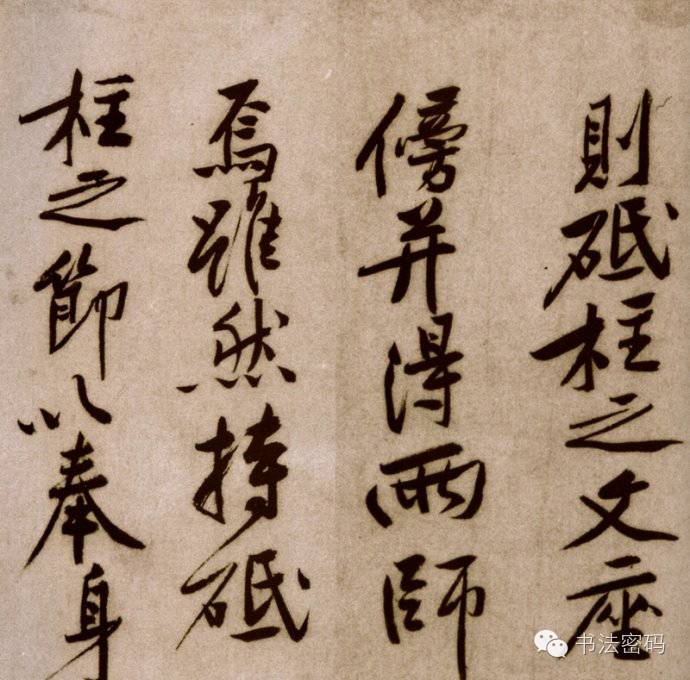 則砥柱之文座
傍并得兩師
焉雖然持砥
柱之節以奉身
书法密码